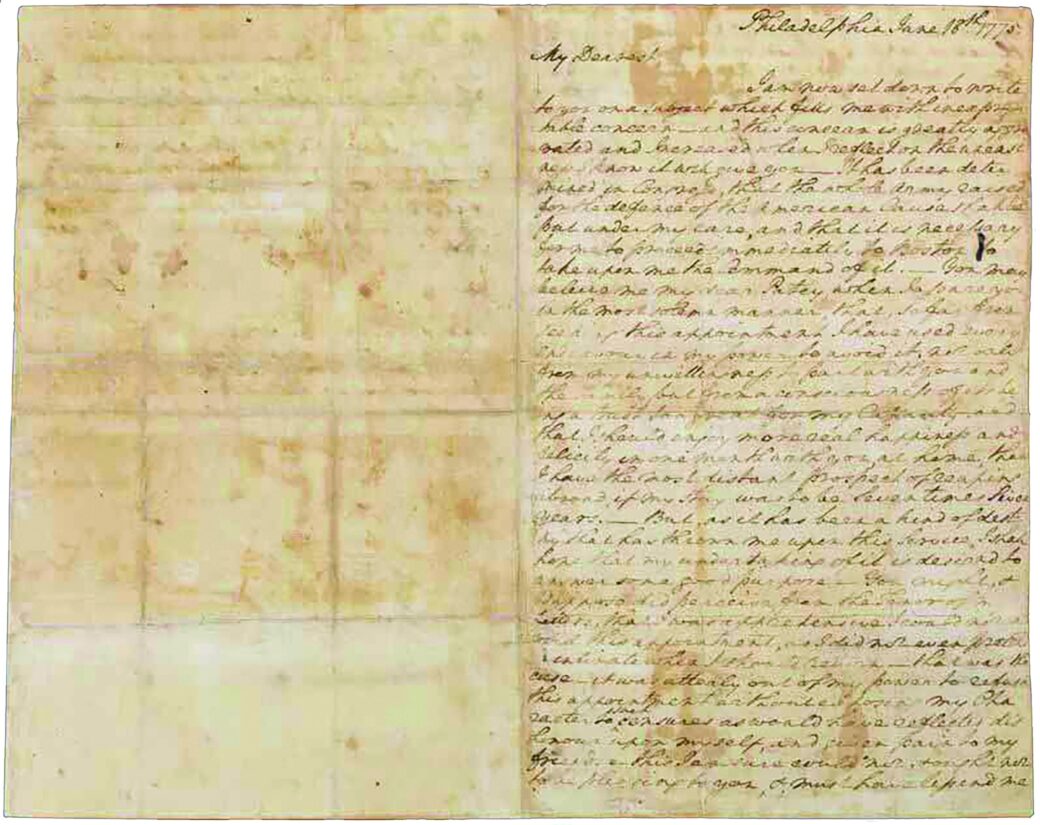 Philadelphia June 18th 1775.
My Dearest
I am now set down to write
to you on a subject which fills me with inexpres
sable concern — and this concern is greatly aggra
vated and Increased when I reflect on the uneasi
ness I know it will give you — It has been deter
mined in Congress, that the whole Army raised
for the defence of the American Cause shall be
put under my care, and that it is necessary
for me to proceed immediately to Boston to
take upon me the Command of it. — You may
beleive me my dear Patcy, when I assure you
in the most solemn manner, that, so far from
seeking this appointment I have used every
endeavour in my power to avoid it, not only
from my unwillingness to part with you and
the Family, but from a consciousness of its be
ing a trust too great for my Capacity and
that I should enjoy more real happiness and
felicity in one month with you, at home, than
I have the most distant prospect of reaping
abroad, if my stay was to be Seven times Seven
years. — But, as it has been a kind of desti
ny that has thrown me upon this Service, I shall
hope that my undertaking of it is designd to
answer some good purpose — You might, &
I suppose did perceive, from the Tenor of my
letters, that I was apprehensive I could not a
void this appointment, as I did not even pretend
intimate when I should return — that was the
case — it was utterly out of my power to refuse
this appointment without exposing my Cha
racter to such censures as would have reflected dis
honour upon myself, and given pain to my
friends — this I am sure could not, & ought not
to be pleasing to you, & must have lessend me